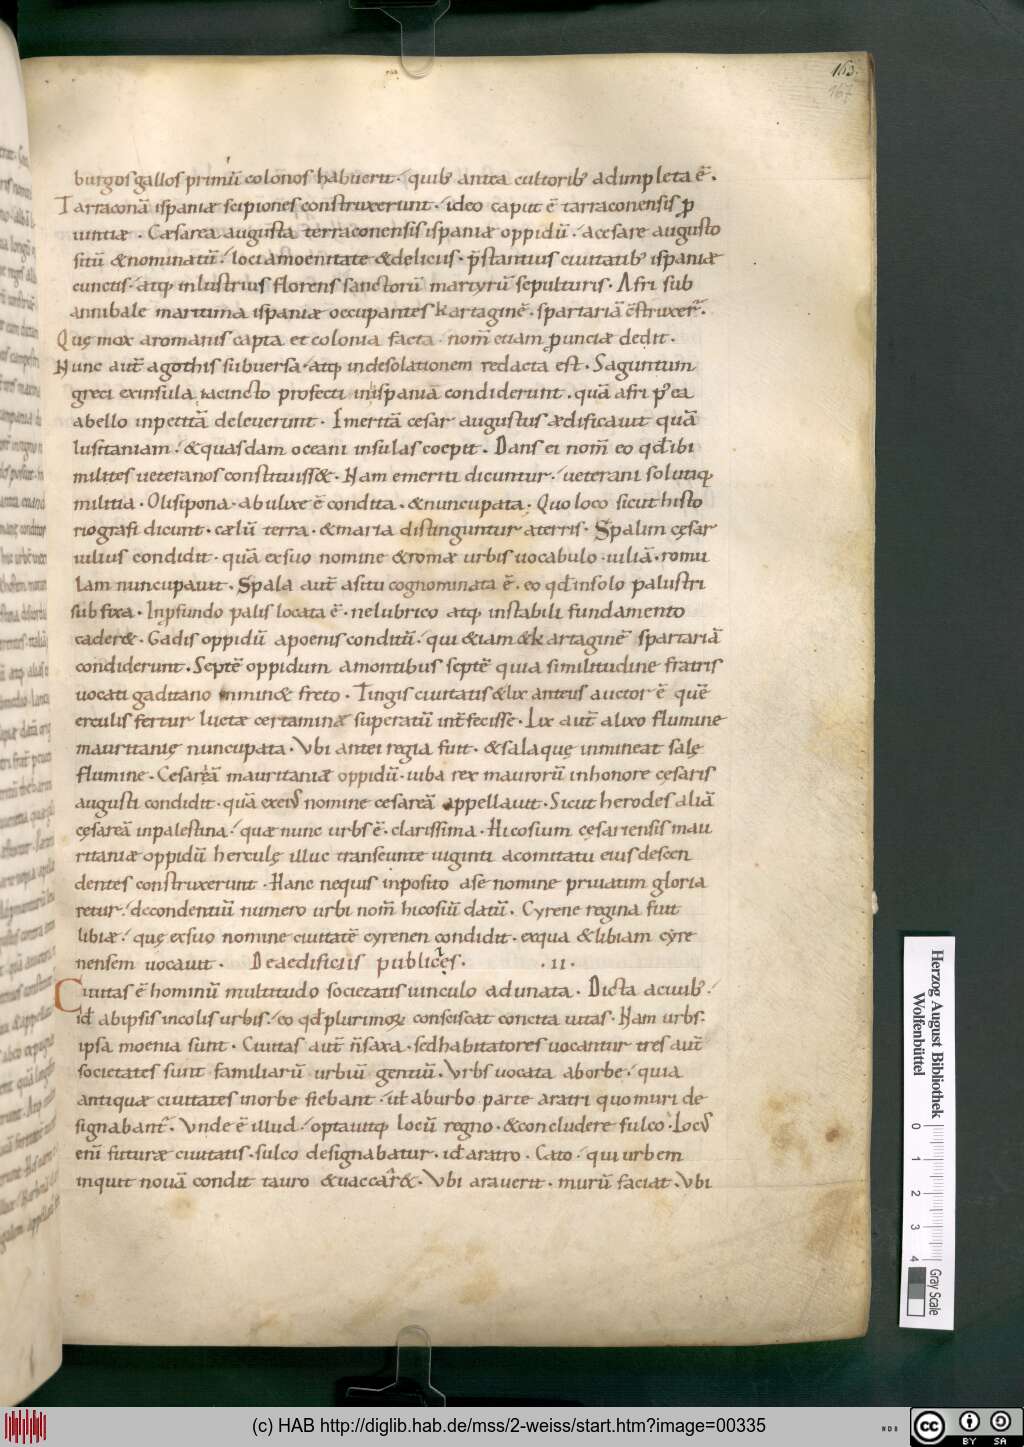 163
167
burgos gallos primū colonos habuerit · quib; antea cultorib; adimpleta ē ·
Tarraconā ispaniæ scipiones construxerunt · ideo caput ē tarraconensis p̱
uintiæ · Cæsarea augusta terraconensis ispaniæ oppidū · acesare augusto
sitū & nominatū · loci amoenitate & deliciis · p̄stantius ciuitatib; ispaniæ
cunctis · atq; inlustrius florens sanctorū martyrū sepulturis · Afri sub
annibale maritima ispaniæ occupantes kartaginē · spartariā c̄struxer̄ ·
Quę mox aromanis capta et colonia facta · nom̄ etiam p̱uinciæ dedit ·
Nunc aut̄ agothis subuersa · atq; indesolationem redacta est · Saguntum
greci exinsula iacincto profecti inispaniā condiderunt · quā afri p̱ ea
abello inpetitā deleuerunt · Imeritā cesar augustus ædificauit quā
lusitaniam · & quasdam oceani insulas coepit · Dans ei nom̄ eo qđ ibi
milites ueteranos constituiss& · Nam emeriti dicuntur · ueterani solutiq;
militia · Olisipona · abulixe ē condita · & nuncupata · Quo loco sicut histo
riografi dicunt · cælū terra · & maria distinguntur aterris · Spalim cęsar
iulius condidit · quā exsuo nomine & romæ urbis uocabulo · iuliā · romu
lam nuncupauit · Spala aut̄ asitu cognominata ē · eo qđ insolo palustri
sub fixa · In p̱fundo palis locata ē · nelubrico atq; instabili fundamento
cader& · Gadis oppidū apoenis conditū · qui & iam & kartaginē spartariā
condiderunt · Septē oppidum amontibus septē quia similitudine fratris
uocati gaditano inmin& freto · Tingis ciuitatis & lix anteus auctor ē quē
erculis fertur luctæ certaminæ superatū int̄fecisse · Lix aut̄ alixo flumine
mauritanię nuncupata · Vbi antei regia fuit · & sala quę inmineat salę
flumine · Cesareā mauritaniæ oppidū · iuba rex maurorū inhonore cęsaris
augusti condidit · quā exeius nomine cesareā appellauit · Sicut herodes aliā
cęsareā inpalestina · quæ nunc urbs ē · clarissima · Hicosium cęsariensis mau
ritaniæ oppidū herculę illuc transeunte uiginti acomitatu eius descen
dentes construxerunt · Hanc nequis inposito ase nomine priuatim gloria
retur · decondentiū numero urbi nom̄ hicosiū datū · Cyrene regina fuit
libiæ · quę exsuo nomine ciuitatē cyrenen condidit · exqua & libiam cyre
nensem uocauit · De aedificiis publicis · · II ·
Ciuitas ē hominū multitudo societatis uinculo adunata · Dicta aciuib; ·
id abipsis incolis urbis · eo qđ plurimorꝝ consciscat concita uitas · Nam urbs ·
ipsa moenia sunt · Ciuitas aut̄ n̄ saxa · sed habitatores uocantur tres aut̄
societates sunt familiarū urbiū gentiū · Vrbs uocata aborbe · quia
antiquæ ciuitates inorbe fiebant · ut aburbo parte aratri quo muri de
signabant̄ · Vnde ē illud · optauitq; locū regno · & concludere sulco · Locus
eni̅ futuræ ciuitatis · sulco designabatur · id aratro · Cato · qui urbem
inquit nouā condit tauro & uaccar& · Vbi arauerit · murū faciat · Vbi
Herzog August Bibliothek
Wolfenbüttel
0 1 2 3 4
Gray Scale
(c) HAB http://diglib.hab.de/mss/2-weiss/start.htm?image=00335
cc BY SA